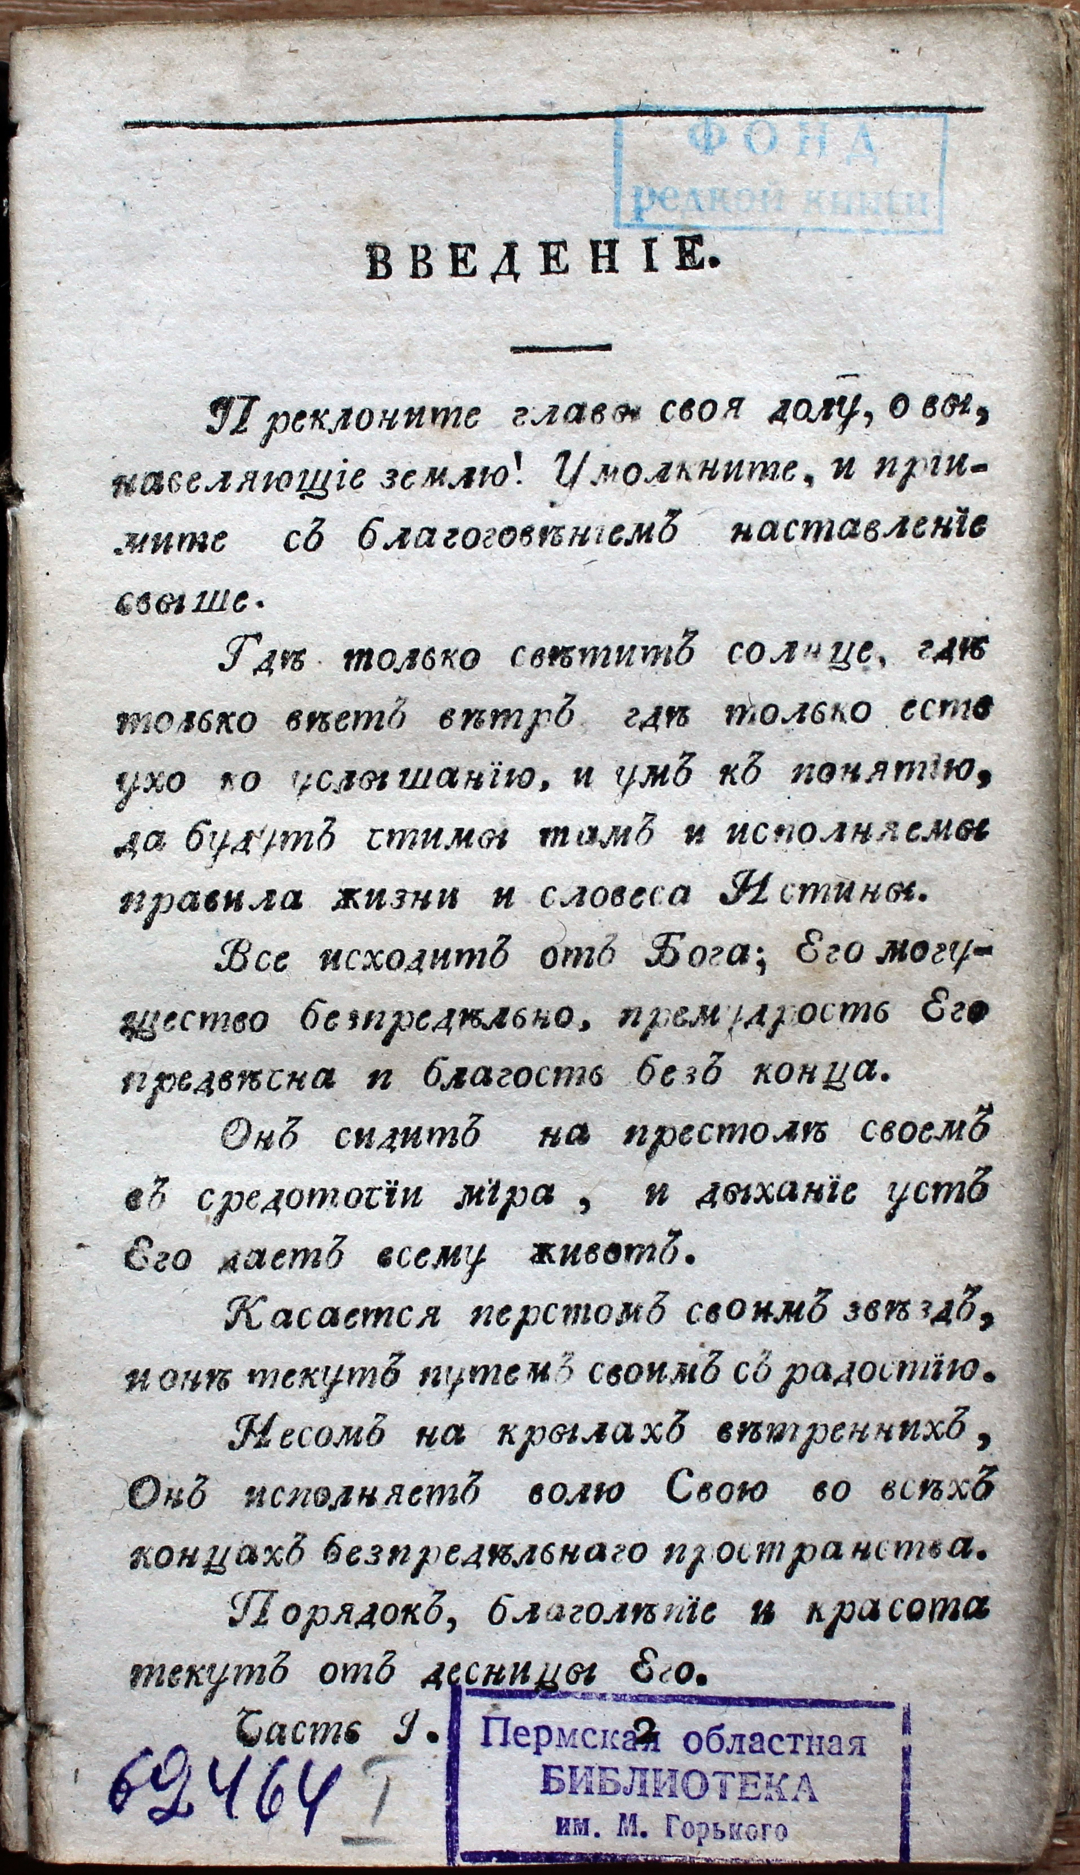 ФОНД
редкой книги
ВВЕДЕНІЕ.
Преклоните главы своя долу, о вы,
населяющіе землю! Умолкните, и пріи-
мите съ благоговѣніемъ наставленіе
свыше.
Гдѣ только свѣтитъ солнце, гдѣ
только вѣетъ вѣтръ гдѣ только есть
ухо ко услышанїю, и умъ къ понятїю,
да будутъ чтимы тамъ и исполняемы
правила жизни и словеса Истины.
Все исходитъ отъ Бога; Его могу-
щество безпредѣльно, премудрость Его
предвѣчна и благость безъ конца.
Онъ сидитъ на престолѣ своемъ
въ средоточїи мїра, и дыханїе устъ
Его даетъ всему животъ.
Касается перстомъ своимъ звѣздъ,
и онѣ текутъ путемъ своимъ съ радостїю.
Несомъ на крылахъ вѣтреннихъ,
Онъ исполняетъ волю Свою во всѣхъ
концахъ безпредѣльнаго пространства.
Порядокъ, благолѣпїе и красота
текутъ отъ десницы Его.
Часть I. 2
62464 I
Пермская областная
БИБЛИОТЕКА
им. М. Горького